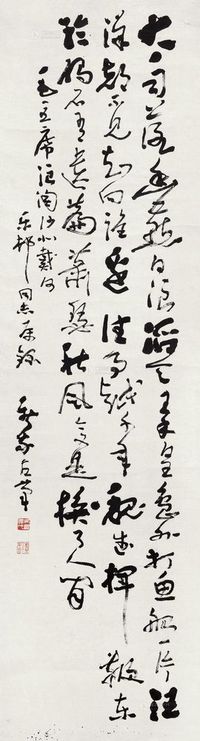 大雨落幽燕白浪滔天秦皇岛外打鱼船一片汪
洋都不见知向谁边往事越千年魏武挥鞭东
临碣石有遗篇萧瑟秋风今又是换了人间
毛主席浪淘沙北戴河
同志属
新我左笔